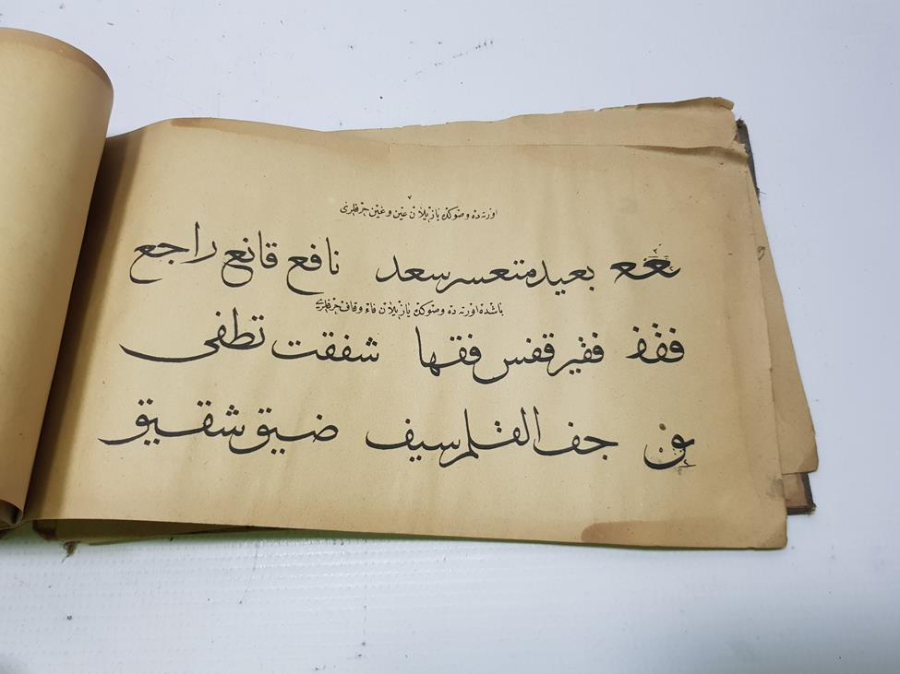 اورته ده و صوكده یازیلان عین و غین حرفلری
ععع بعید متعسر سعد نافع قانع راجع
باشده اورته ده و صوكده یازیلان فاء و قاف حرفلری
ففف فقیر قفس فقها شفقت تطفی
ق جف القلم سیف ضیق شقیق